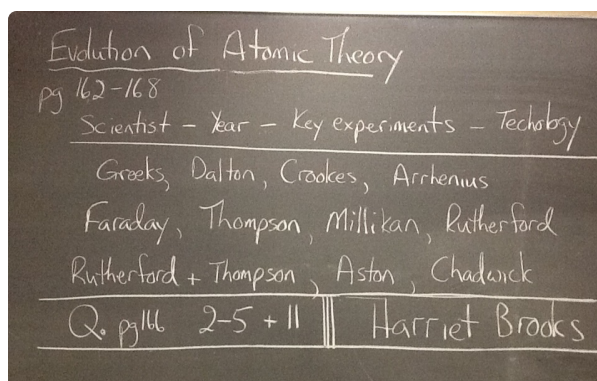 Evolution of Atomic Theory
pg 162-168
Scientist - Year - Key experiments - Techology
Greeks, Dalton, Crookes, Arrhenius
Faraday, Thompson, Millikan, Rutherford
Rutherford + Thompson, Aston, Chadwick
Q. pg166 2-5 + 11 Harriet Brooks